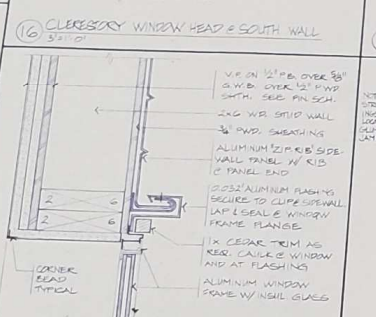 16 CLERESTORY WINDOW HEAD @ SOUTH WALL
3"=1'-0"
V.P. ON 1/2" P.B. OVER 5/8"
G.W.B. OVER 1/2" PWD
SHTH. SEE FIN SCH.
2x6 WD. STUD WALL
3/4" PWD. SHEATHING
ALUMINUM 'ZIP RIB' SIDE-
WALL PANEL W/ RIB
@ PANEL END
0.032" ALUMINUM FLASHING
SECURE TO CLIP @ SIDEWALL
LAP & SEAL @ WINDOW
FRAME FLANGE
2 6
2 6
1x CEDAR TRIM AS
REQ. CAULK @ WINDOW
AND AT FLASHING
CORNER
BEAD
TYPICAL
ALUMINUM WINDOW
FRAME W/ INSUL GLASS